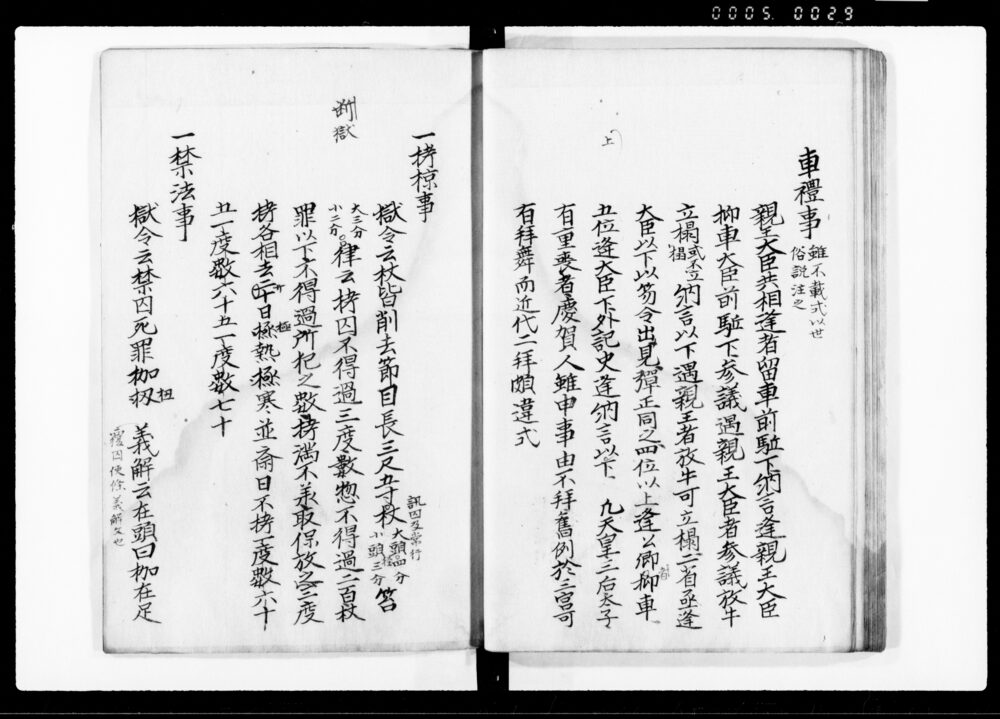 0005. 0029
車禮事 雖不載式以世
俗説注之
親王大臣共相逢者留車前駈下納言逢親王大臣
抑車大臣前駈下参議遇親王大臣者参議放牛
立榻或不立榻納言以下遇親王者放牛可立榻二省丞逢
大臣以下以笏令出見彈正同之四位以上逢公卿抑車
五位逢大臣下外記史逢納言以下 凡天皇三后太子
有重喪者慶賀人雖申事由不拜舊例於三宮可
有拜舞而近代二拜頗違式
上
一拷掠事
獄令云杖皆削去節目長三尺五寸 訊囚及常行
杖大頭四分
小頭三分 笞
大三分
小二分。律云拷囚不得過三度數惣不得過二百杖
罪以下不得過所犯之數拷満不承取保放之三度
拷各相去廿日極熱極寒並齋日不拷一度數六十
五一度數六十五一度數七十
断獄
一禁法事
獄令云禁囚死罪枷杻 義解云在頭曰枷在足